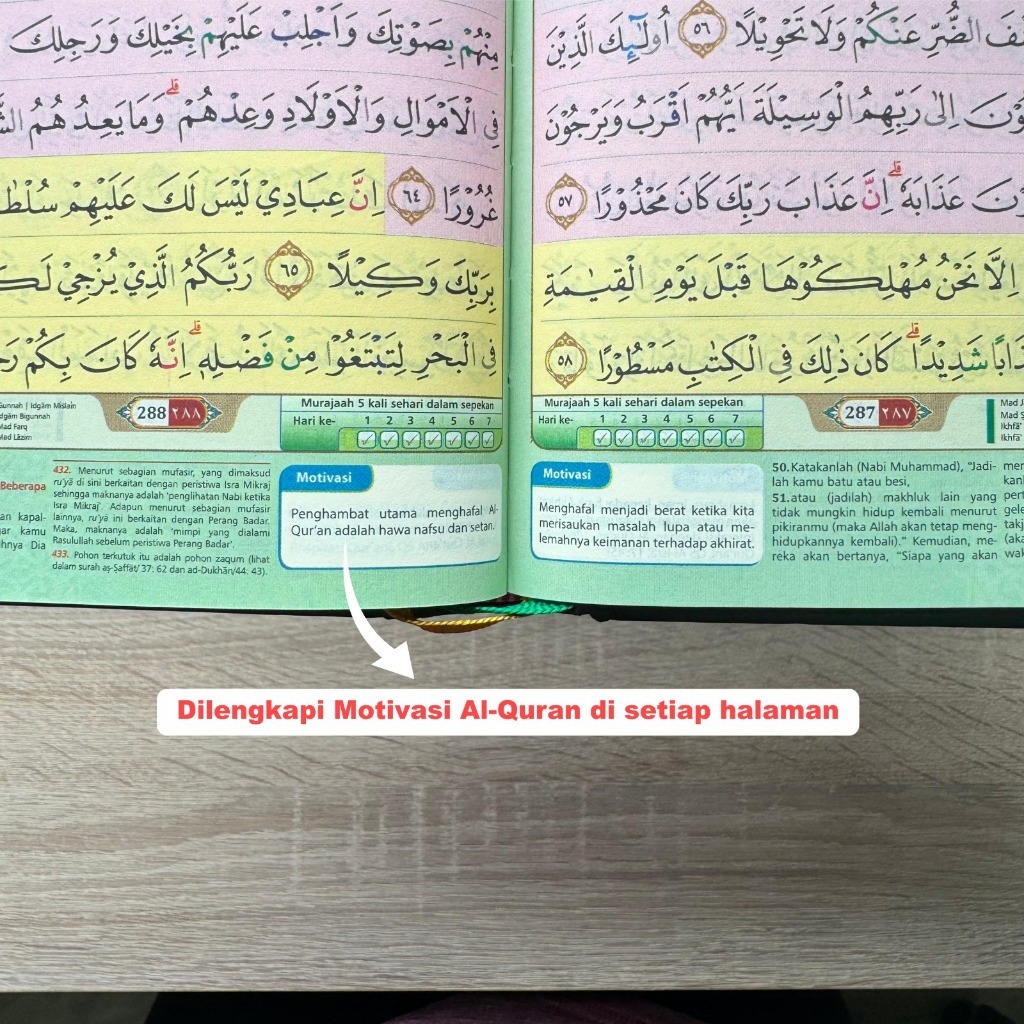 الضُّرِّ عَنْكُمْ وَلَا تَحْوِيْلًا ٥٦ اُولٰۤىِٕكَ الَّذِيْنَ
اِلٰى رَبِّهِمُ الْوَسِيْلَةَ اَيُّهُمْ اَقْرَبُ وَيَرْجُوْنَ
عَذَابَهٗۗ اِنَّ عَذَابَ رَبِّكَ كَانَ مَحْذُوْرًا ٥٧
اِلَّا نَحْنُ مُهْلِكُوْهَا قَبْلَ يَوْمِ الْقِيٰمَةِ
شَدِيْدًاۗ كَانَ ذٰلِكَ فِى الْكِتٰبِ مَسْطُوْرًا ٥٨
Murajaah 5 kali sehari dalam sepekan
Hari ke- 1 2 3 4 5 6 7
287 ٢٨٧
Motivasi
Menghafal menjadi berat ketika kita
merisaukan masalah lupa atau me-
lemahnya keimanan terhadap akhirat.
50.Katakanlah (Nabi Muhammad), "Jadi-
lah kamu batu atau besi,
51.atau (jadilah) makhluk lain yang
tidak mungkin hidup kembali menurut
pikiranmu (maka Allah akan tetap meng-
hidupkannya kembali)." Kemudian, me-
reka akan bertanya, "Siapa yang akan
مِنْهُمْ بِصَوْتِكَ وَاَجْلِبْ عَلَيْهِمْ بِخَيْلِكَ وَرَجِلِكَ
فِى الْاَمْوَالِ وَالْاَوْلَادِ وَعِدْهُمْۗ وَمَا يَعِدُهُمُ
غُرُوْرًا ٦٤ اِنَّ عِبَادِيْ لَيْسَ لَكَ عَلَيْهِمْ
بِرَبِّكَ وَكِيْلًا ٦٥ رَبُّكُمُ الَّذِيْ يُزْجِيْ
فِى الْبَحْرِ لِتَبْتَغُوْا مِنْ فَضْلِهٖۗ اِنَّهٗ كَانَ بِكُمْ
Gunnah | Idgām Mislain
Idgām Bigunnah
Mad Farq
Mad Lāzim
288 ٢٨٨
Murajaah 5 kali sehari dalam sepekan
Hari ke- 1 2 3 4 5 6 7
Beberapa
kamu
Dia
432. Menurut sebagian mufasir, yang dimaksud
ru'yā di sini berkaitan dengan peristiwa Isra Mikraj
sehingga maknanya adalah 'penglihatan Nabi ketika
Isra Mikraj'. Adapun menurut sebagian mufasir
lainnya, ru'yā ini berkaitan dengan Perang Badar.
Maka, maknanya adalah 'mimpi yang dialami
Rasulullah sebelum peristiwa Perang Badar'.
433. Pohon terkutuk itu adalah pohon zaqum (lihat
dalam surah aṣ-Ṣaffāt/ 37: 62 dan ad-Dukhān/44: 43).
Motivasi
Penghambat utama menghafal Al-
Qur'an adalah hawa nafsu dan setan.
Dilengkapi Motivasi Al-Quran di setiap halaman